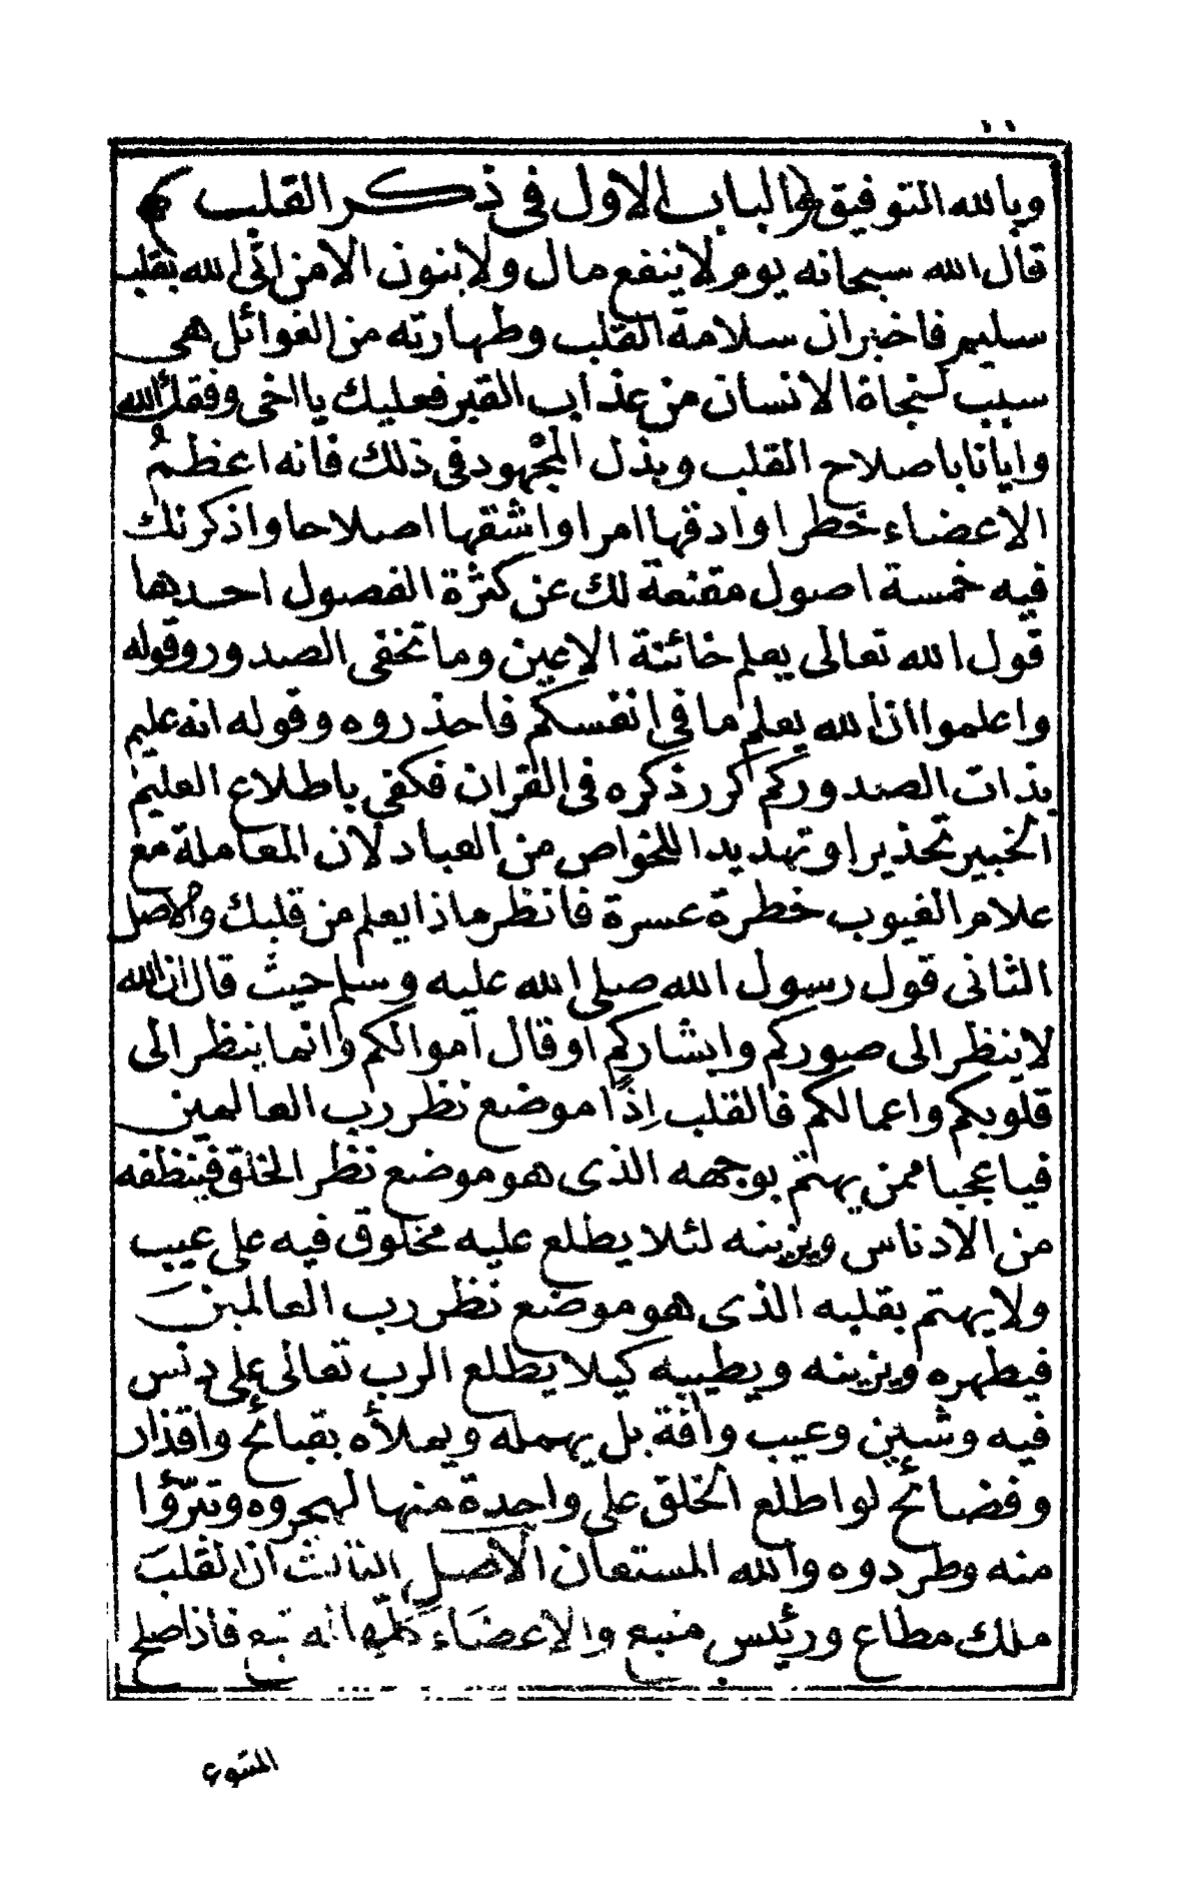 وبالله التوفيق ﴿الباب الاول فى ذكر القلب﴾
قال الله سبحانه يوم لا ينفع مال ولا بنون الا من اتى الله بقلب
سليم فاخبر ان سلامة القلب وطهارته من الغوائل هى
سبب لنجاة الانسان من عذاب القبر فعليك يا اخى وفقك الله
وايانا باصلاح القلب وبذل المجهود فى ذلك فانه اعظمُ
الاعضاء خطرا وادقها امرا واشقها اصلاحا واذكر لك
فيه خمسة اصول مقنعة لك عن كثرة الفصول احدها
قول الله تعالى يعلم خائنة الاعين وما تخفى الصدور وقوله
واعلموا ان الله يعلم ما فى انفسكم فاحذروه وقوله انه عليم
بذات الصدور كم كرر ذكره فى القران فكفى باطلاع العليم
الخبير تحذيرا وتهديدا للخواص من العباد لان المعاملة مع
علام الغيوب خطرة عسرة فانظر ماذا يعلم من قلبك والاصل
الثانى قول رسول الله صلى الله عليه وسلم حيث قال ان الله
لا ينظر الى صوركم وابشاركم او قال اموالكم وانما ينظر الى
قلوبكم واعمالكم فالقلب اِذًا موضع نظر رب العالمين
فيا عجبا ممن يهتم بوجهه الذى هو موضع نظر الخلق فينظفه
من الادناس ويزينه لئلا يطلع عليه مخلوق فيه على عيب
ولا يهتم بقلبه الذى هو موضع نظر رب العالمين
فيطهره ويزينه ويطيبه كيلا يطلع الرب تعالى على دنس
فيه وشين وعيب وافة بل يهمله ويملأه بقبائح واقذار
وفضائح لو اطلع الخلق على واحدة منها لهجروه وتبرّؤا
منه وطردوه والله المستعان الاصل الثالث ان القلبَ
ملك مطاع ورئيس متبع والاعضاء كلّها له تبع فاذا صلح
المتبوع